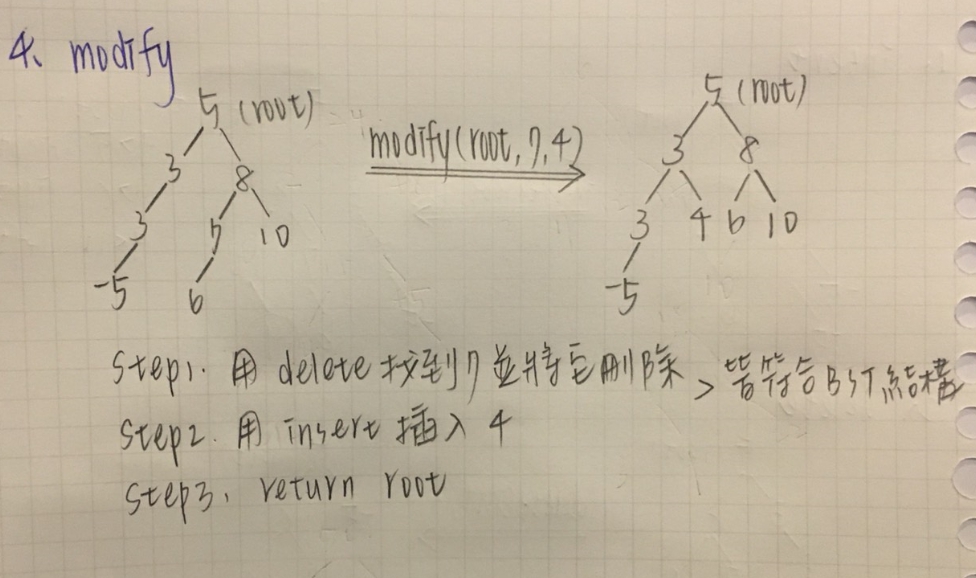 4、modify
5 (root)
3 8
3 7 10
-5 6
modify(root, 7, 4)
5 (root)
3 8
3 4 6 10
-5
Step1. 用 delete 找到7並將它刪除
Step2. 用 insert 插入 4
> 皆符合BST結構
Step3. return root